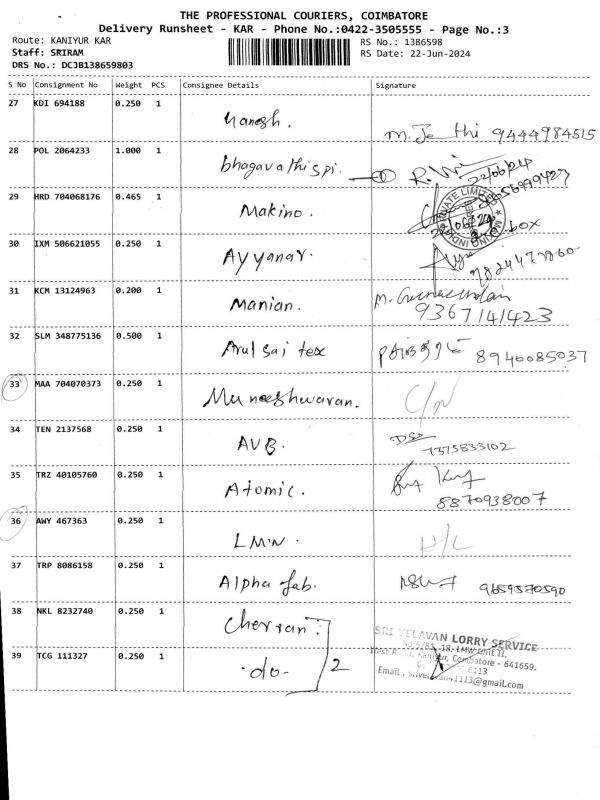 THE PROFESSIONAL COURIERS, COIMBATORE
Delivery Runsheet - KAR - Phone No.:0422-3505555 - Page No.:3
Route: KANIYUR KAR
Staff: SRIRAM
DRS No.: DCJB138659803
RS No.: 1386598
RS Date: 22-Jun-2024
S No Consignment No Weight PCS Consignee Details Signature
27 KDI 694188 0.250 1
9444984515
28 POL 2064233 1.000 1 bhagavathi spi.
22/06/24
29 HRD 704068176 0.465 1 Makino.
PRIVATE LIMITED
30 IXM 506621055 0.250 1 Ayyanar.
31 KCM 13124963 0.200 1 Manian.
9367141423
32 SLM 348775136 0.500 1 Arul sai tex
8940085037
33 MAA 704070373 0.250 1 Muneeshwaran.
34 TEN 2137568 0.250 1 AVB.
7375833102
35 TRZ 40105760 0.250 1 Atomic.
8870938007
36 AWY 467363 0.250 1 LMW.
37 TRP 8086158 0.250 1 Alpha fab.
9659570590
38 NKL 8232740 0.250 1 Cherran.
SRI VELAVAN LORRY SERVICE
LMW Unit II,
Kaniyur, Coimbatore - 641659.
39 TCG 111327 0.250 1 -do- 2
Email
1113@gmail.com